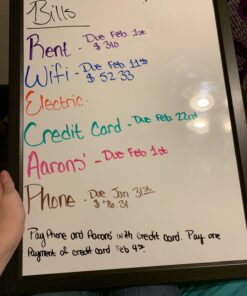 Bills
Rent - Due Feb. 1st
$ 310
Wifi - Due Feb 11th
$ 52.33
Electric -
Credit Card - Due Feb 22nd
Aarons' - Due Feb 1st
Phone - Due Jan 31st
$ 76.31
Pay Phone and Aarons with credit card. Pay one
Payment of credit card Feb 4th.